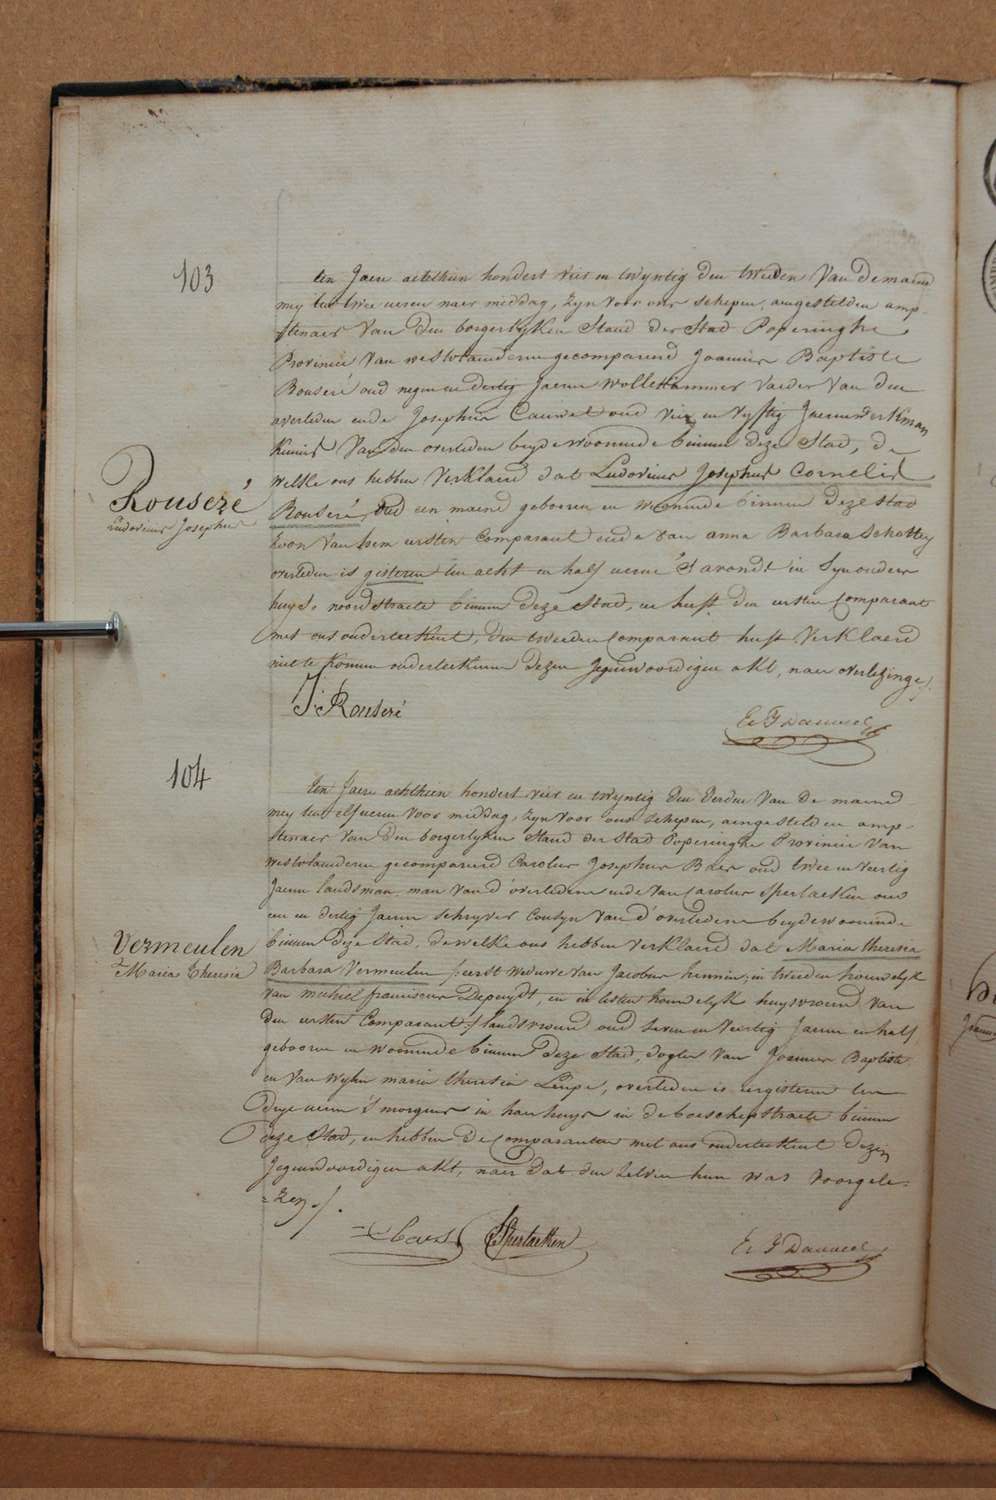 103
ten Jaere achthien hondert vier en twyntig den tweeden Van de maend
mey ten twee ueren naer middag, zyn voor ons schepen, aengestelden amp-
stenaer Van den borgerlyken Stand der Stad Poperinghe
Provincie Van westvlaenderen gecompareerd Joannes Baptiste
Rouseré oud negen en dertig Jaeren wollekammer Vaeder Van den
overleden ende Josephus Cauwet oud vier en vyftig Jaeren werkman
Kennis Van den overleden beyde woonende binnen deze Stad, de
welke ons hebben Verklaerd dat Ludovicus Josephus Cornelis
Rouseré, oud een maend geboren en woonende binnen deze stad
zoon Van hem eersten Comparant ende van anna Barbara Schottey
overleden is gisteren ten acht en half ueren S'avonds in Syn ouders
huys, noordstraete binnen deze Stad, en heeft den eersten Comparant
met ons onderteekent, den tweeden Comparant heeft Verklaerd
niet te konnen onderteekenen dezen Jegenwoordigen akt, naer overlezinge ./.
Rouseré
Ludovicus Josephus
J: Rouseré
104
ten Jaere achthien hondert vier en twyntig den derden Van de maend
mey ten elf ueren voor middag, zyn voor ons schepen, aengestelden amp-
stenaer Van den borgerlyken Stand der Stad Poperinghe Provincie Van
westvlaenderen gecompareerd Carolus Josephus Baes oud twee en veertig
Jaeren landsman, man van d'overledene ende Van Carolus Sperlaeken oud
een en dertig Jaeren schryver Cousyn Van d'overledene beyde woonende
binnen deze Stad, de welke ons hebben verklaerd dat Maria theresia
Barbara Vermeulen eerst weduwe van Jacobus hennin, in tweeden houwelyk
van michiel franciscus Depuydt, en in lesten houwelyk huysvrouw Van
den eersten Comparant landsvrouw oud Seven en Veertig Jaeren en half
gebooren en woonende binnen deze Stad, dogter Van Joannes Baptiste
en Van Wylen maria theresia Leupe, overleden is eergisteren ten
dry ueren 's morgens in haer huys in de boeschepstraete binnen
deze Stad, en hebben de Comparanten met ons onderteekent dezen
Jegenwoordigen akt, naer dat den zelven hun was voorgele-
=zen ./.
Vermeulen
Maria Theresia
C Baes
C Sperlaeken